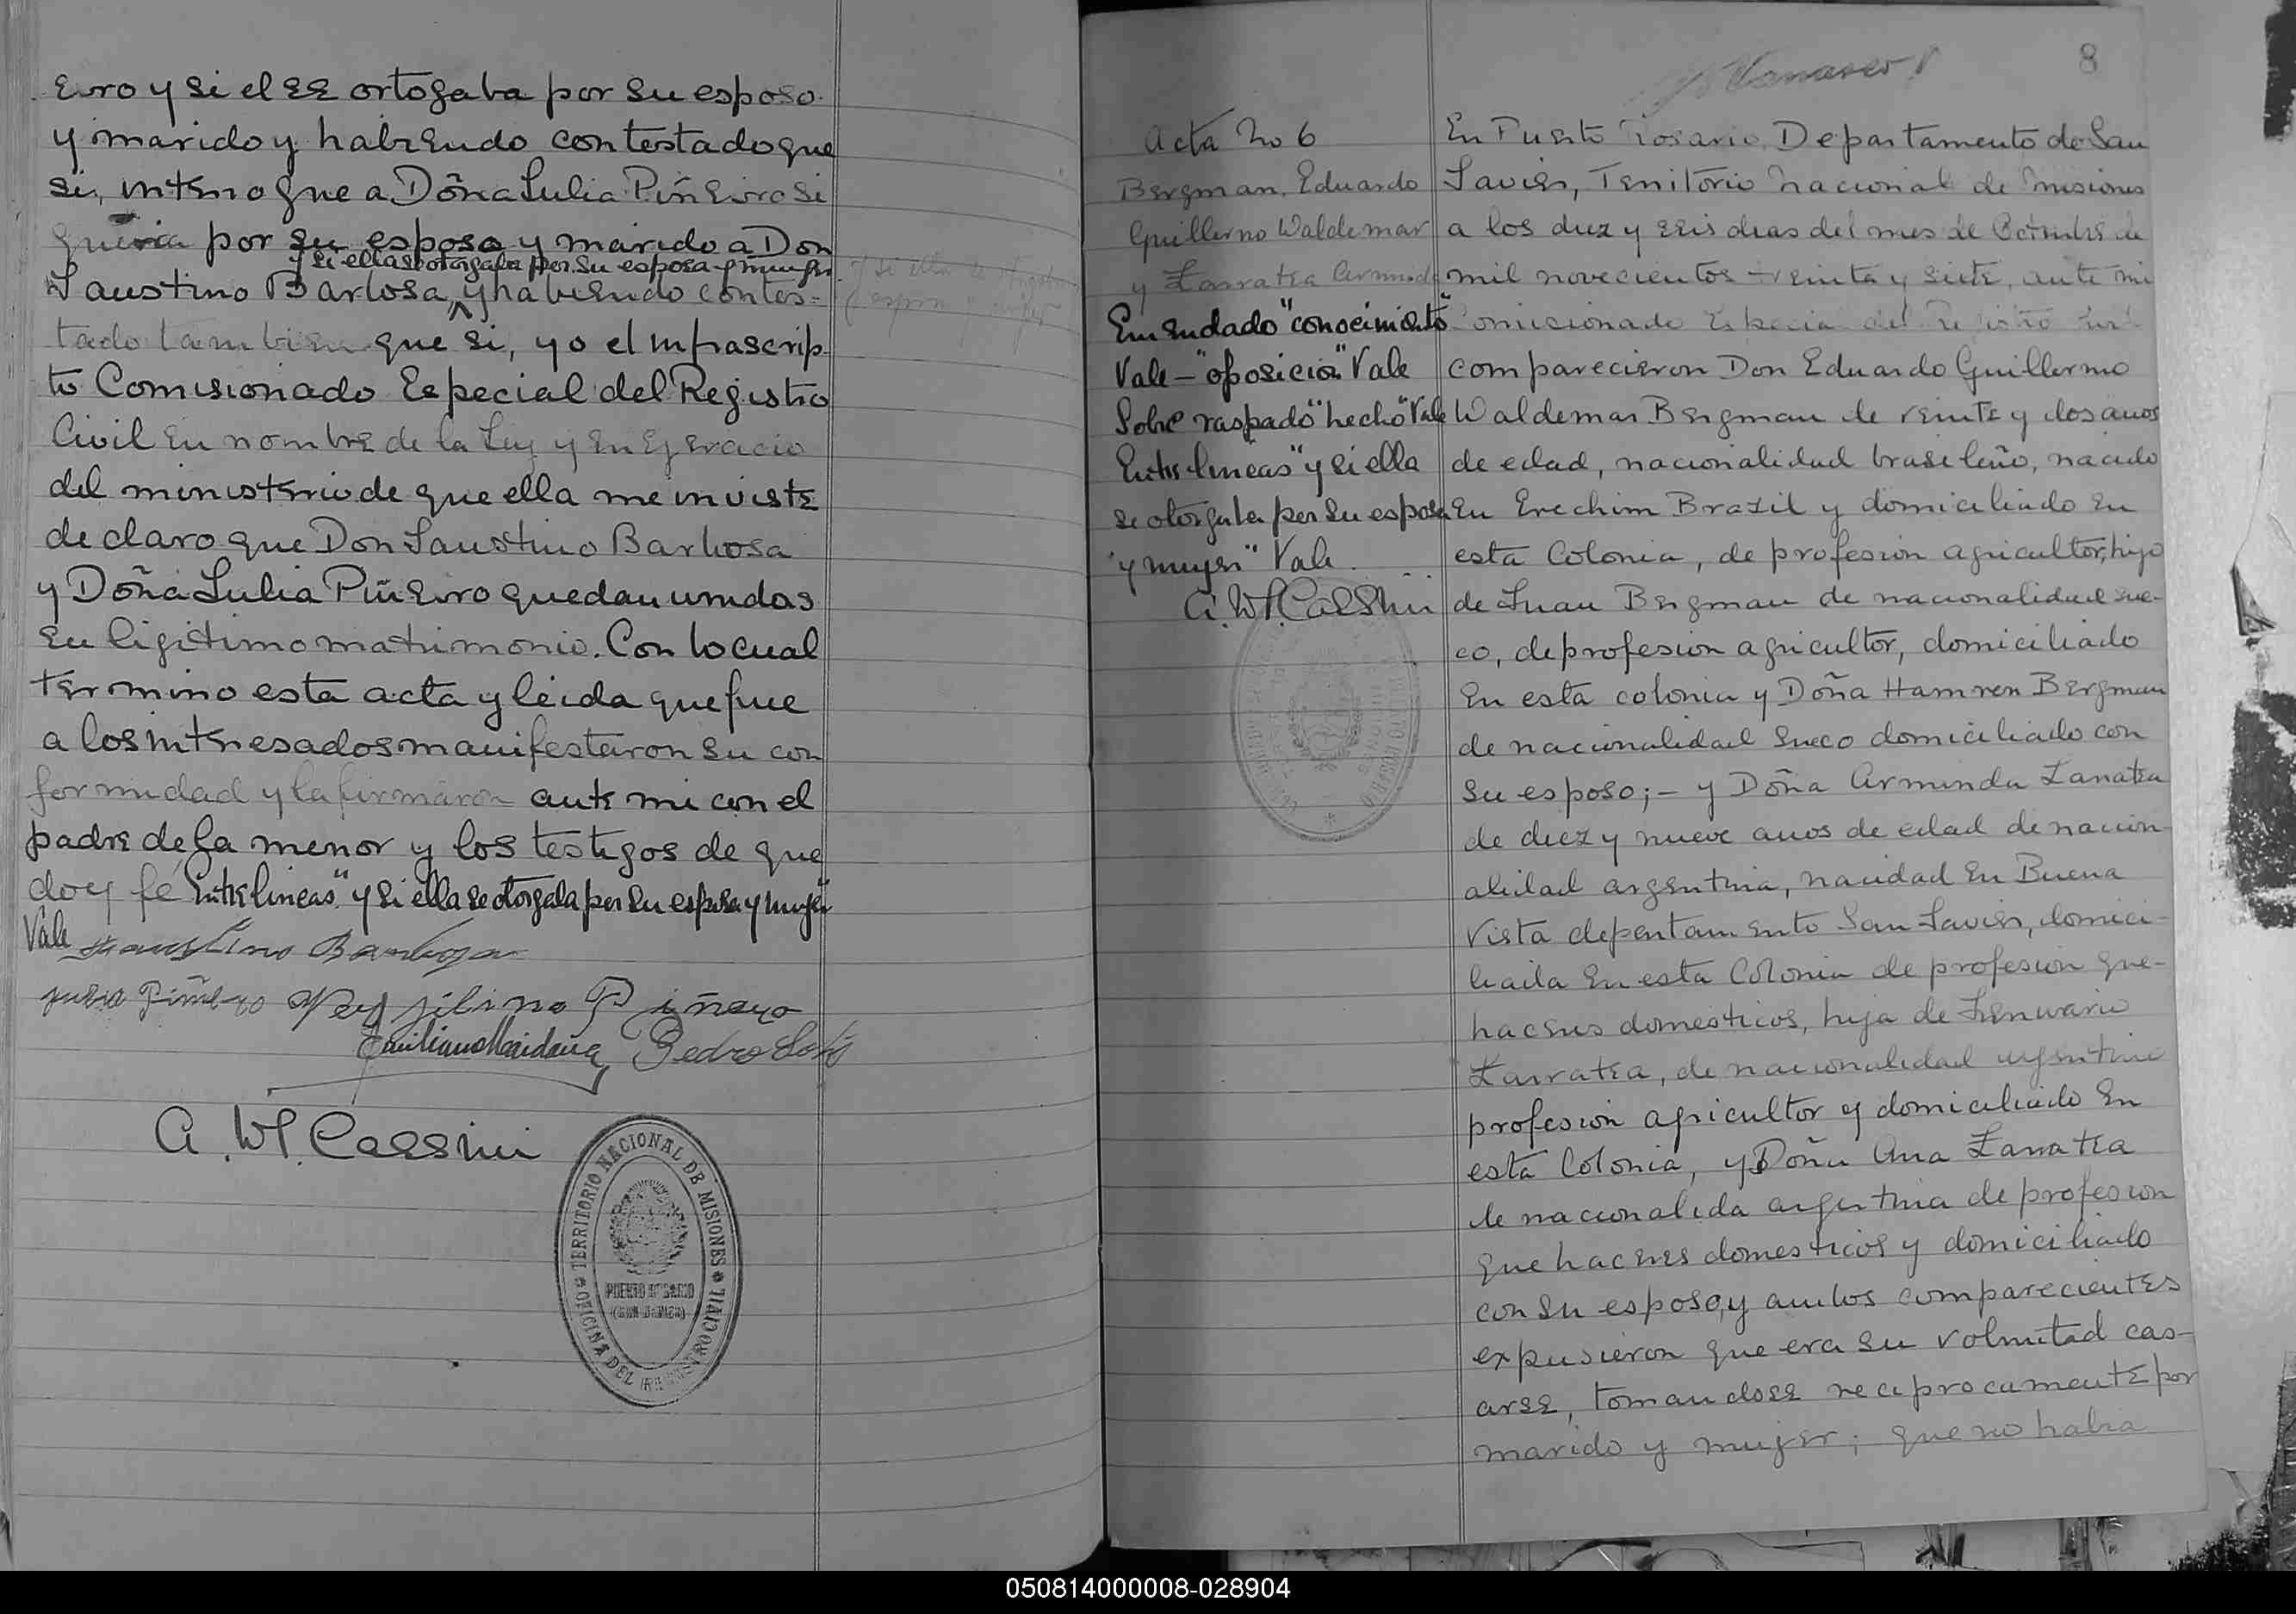 eiro y si el se ortogaba por su esposo
y marido y habiendo contestado que
si, interrogue a Doña Julia Piñeiro si
queria por su esposo y marido a Don
y si ella se otorgaba por su esposa y mujer
Faustino Barbosa, y habiendo contes=
tado tambien que si, yo el infrascrip
to Comisionado Especial del Registro
Civil en nombre de la Ley y en Ejercicio
del ministerio de que ella me inviste
declaro que Don Faustino Barbosa
y Doña Julia Piñeiro quedan unidos
en ligitimo matrimonio. Con lo cual
termino esta acta y leida que fue
a los interesados manifestaron su con
formidad y la firmaron ante mi con el
padre de la menor y los testigos de que
doy fé Entre lineas "y si ella se otorgaba por su esposa y mujer"
Vale Faustino Barboza
Piñeiro Piñeyro
Emiliano Maidana Pedro Soto
A. W. Cassini
OFICINA DEL REGISTRO CIVIL * TERRITORIO NACIONAL DE MISIONES *
PUERTO ROSARIO
(SAN JAVIER)
8
Acta No 6
Bergman, Eduardo
Guillermo Waldemar
y Zarratea Arminda
Enmendado "conocimiento"
Vale - "oposición" Vale
Sobre raspado "hecho" Vale
Entre lineas "y si ella
se otorgaba por su esposa
y mujer" Vale
A. W. Cassini
En Puerto Rosario, Departamento de San
Javier, Territorio Nacional de Misiones
a los diez y seis dias del mes de Octubre de
mil novecientos treinta y siete, ante mi
Comisionado Especial del Registro Civil
comparecieron Don Eduardo Guillermo
Waldemar Bergman de veinte y dos años
de edad, nacionalidad brasileño, nacido
en Erechim Brazil y domiciliado en
esta Colonia, de profesion agricultor, hijo
de Juan Bergman de nacionalidad sue-
co, de profesion agricultor, domiciliado
en esta colonia y Doña Hamren Bergman
de nacionalidad sueco domiciliado con
su esposo; - y Doña Arminda Zarratea
de diez y nueve años de edad de nacion-
alidad argentina, nacidad en Buena
Vista departamento San Javier, domici-
liada en esta Colonia de profesion que-
haceres domesticos, hija de Jenuario
Zarratea, de nacionalidad argentino
profesion agricultor y domiciliado en
esta Colonia, y Doña Ana Zarratea
de nacionalida argentina de profesion
quehaceres domesticos y domiciliado
con su esposo, y ambos comparecientes
expusieron que era su voluntad cas-
arse, tomandose reciprocamente por
marido y mujer; que no habia
050814000008-028904